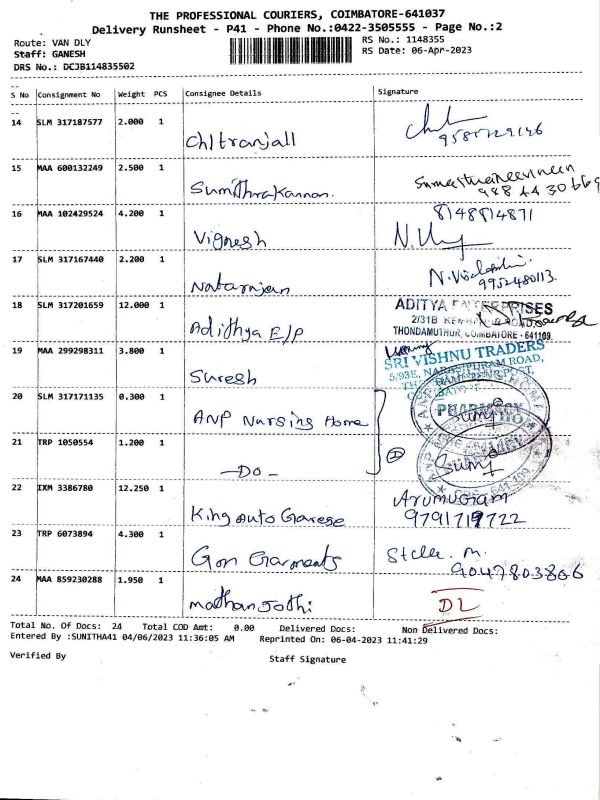 THE PROFESSIONAL COURIERS, COIMBATORE-641037
Delivery Runsheet - P41 - Phone No.:0422-3505555 - Page No.:2
Route: VAN DLY RS No.: 1148355
Staff: GANESH RS Date: 06-Apr-2023
DRS No.: DCJB114835502
S No Consignment No Weight PCS Consignee Details Signature
14 SLM 317187577 2.000 1
Chitranjali
15 MAA 600132249 2.500 1
Sumithra Kannan.
16 MAA 102429524 4.200 1 8148814871
Vignesh
17 SLM 317167440 2.200 1
Natarajan 9952480113.
18 SLM 317201659 12.000 1 ADITYA ENTERPRISES
Adithya E/P THONDAMUTHUR, COIMBATORE - 641109.
19 MAA 299298311 3.800 1 SRI VISHNU TRADERS
Suresh 5/93E, NARASIPURAM ROAD,
20 SLM 317171135 0.300 1
ANP Nursing Home PHARMACY
21 TRP 1050554 1.200 1
-Do- Sumi
22 IXM 3386780 12.250 1 Arumugam
King auto Garege 9791719722
23 TRP 6073894 4.300 1 Stella. M.
Gon Garments 9047803866
24 MAA 859230288 1.950 1
Madhan Jothi DL
Total No. Of Docs: 24 Total COD Amt: 0.00 Delivered Docs: Non Delivered Docs:
Entered By :SUNITHA41 04/06/2023 11:36:05 AM Reprinted On: 06-04-2023 11:41:29
Verified By Staff Signature